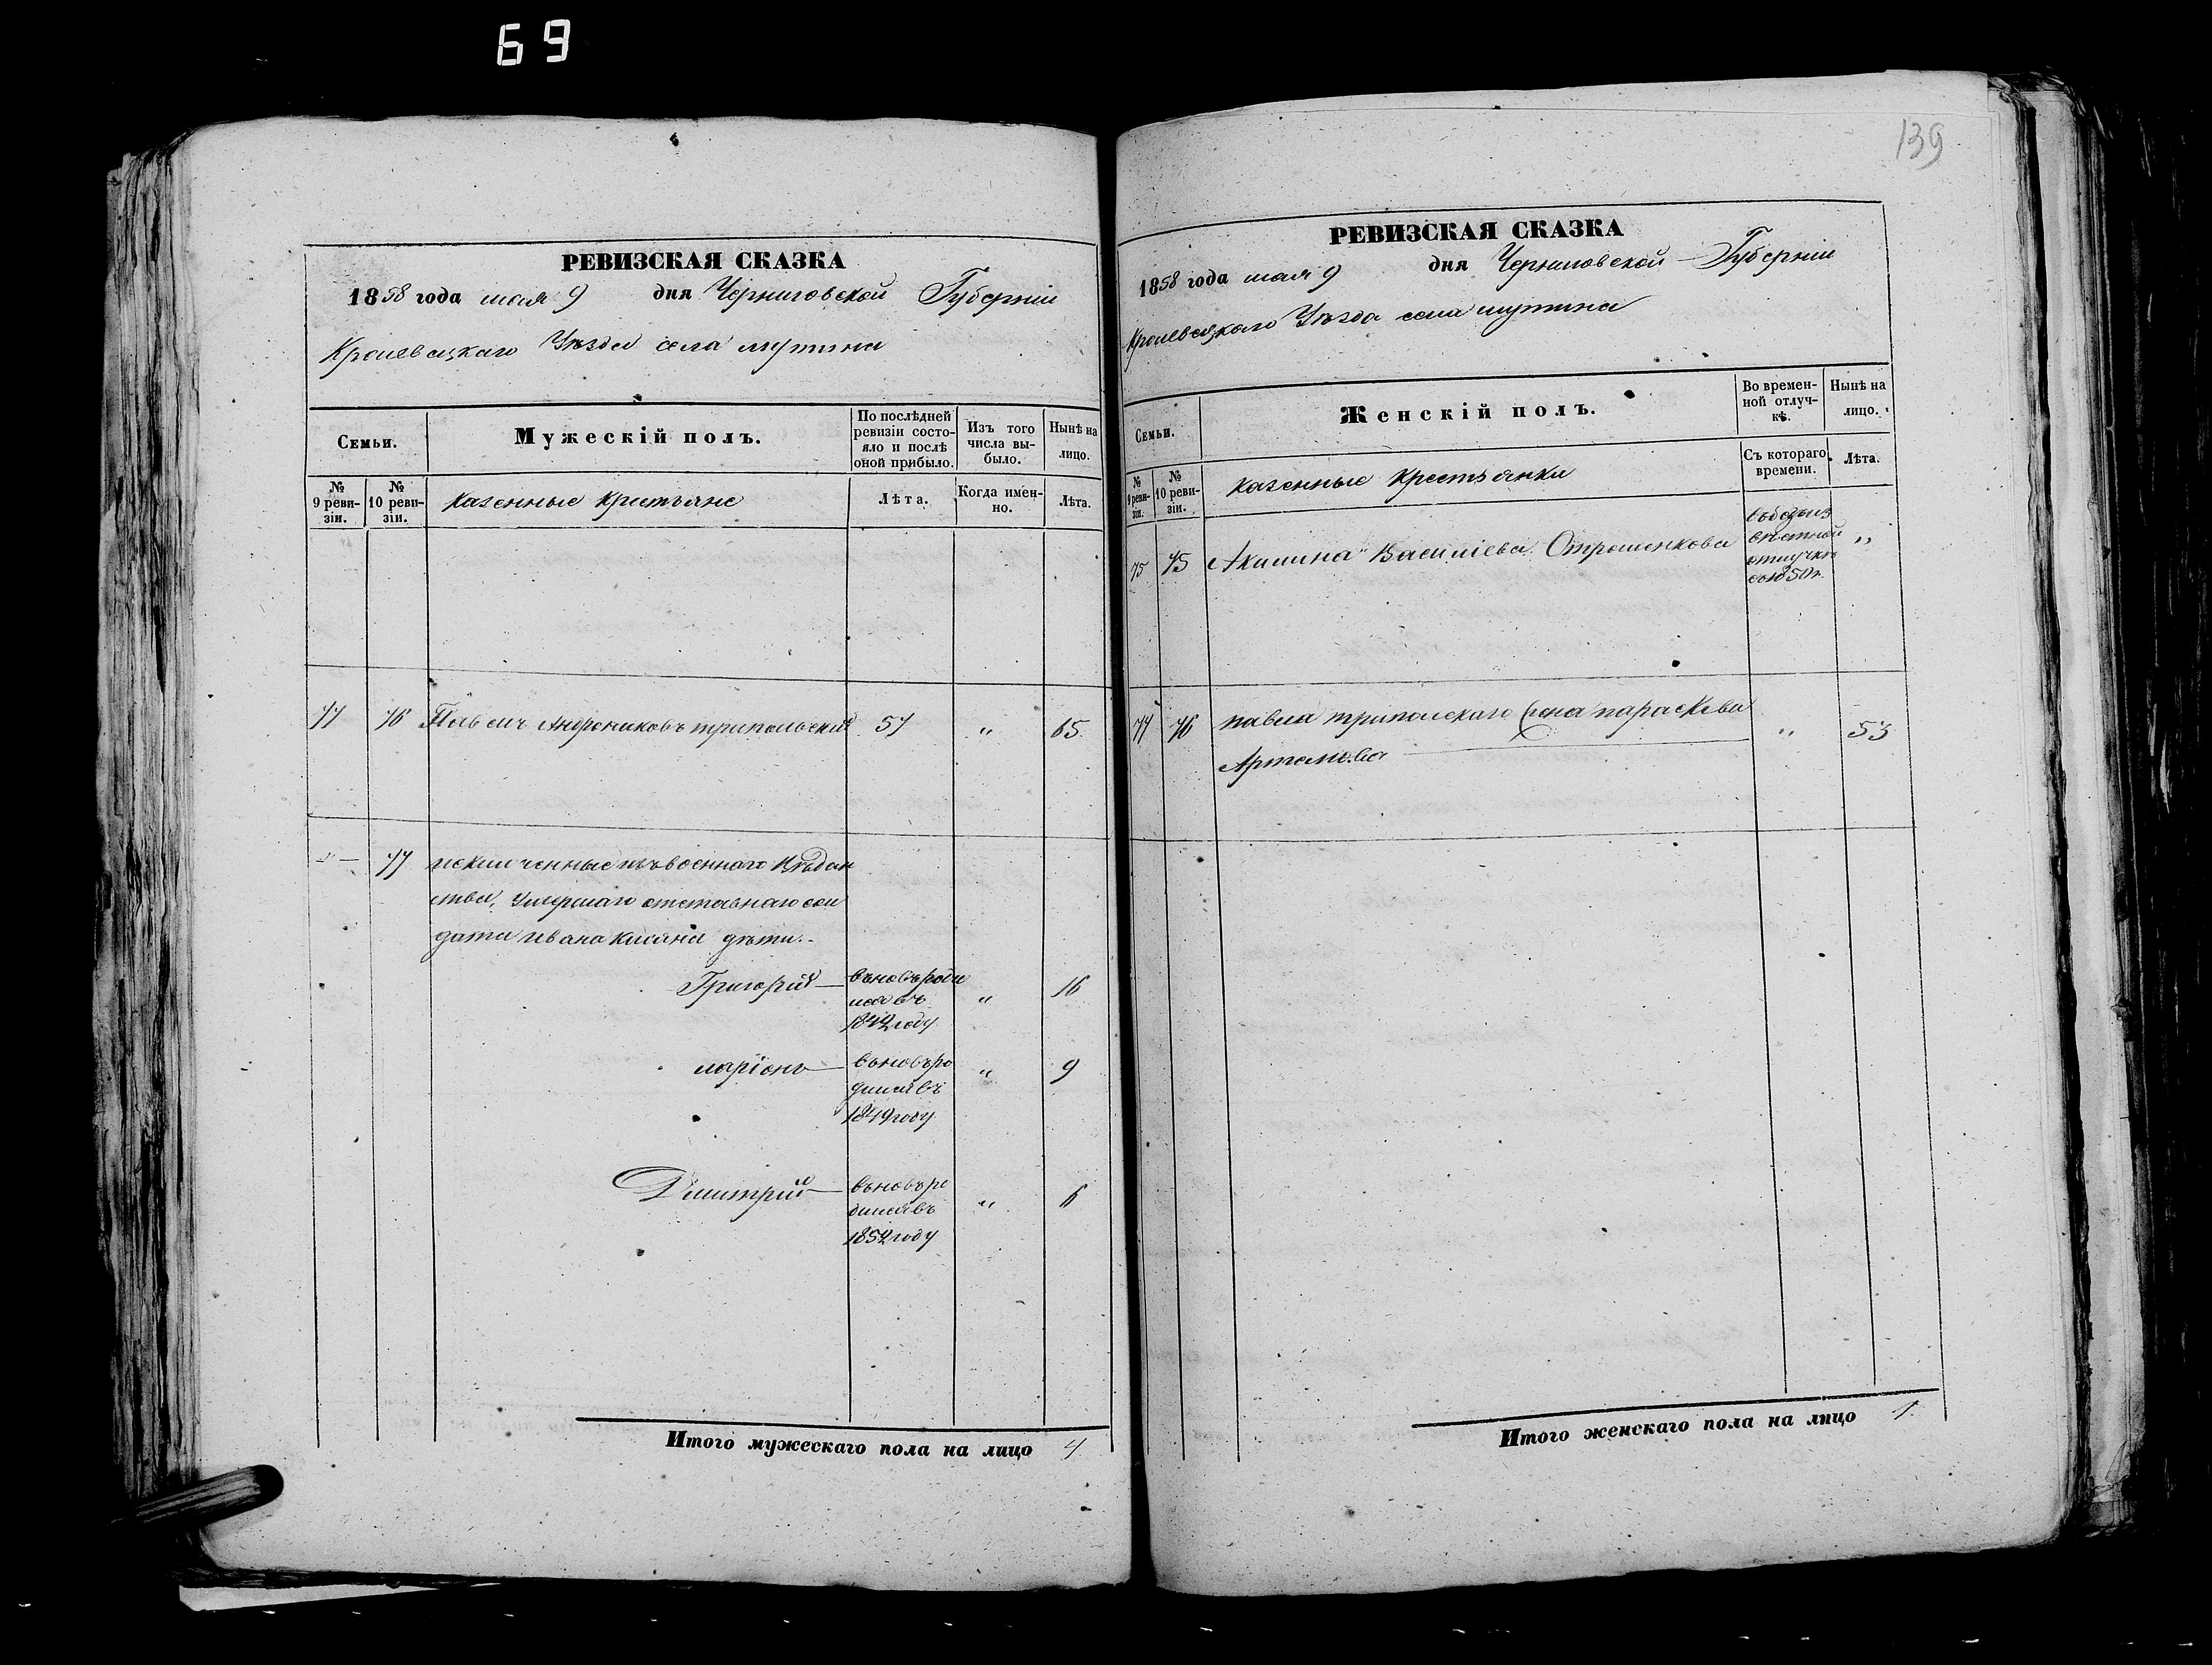 69
РЕВИЗСКАЯ СКАЗКА
1858 года мая 9 дня Черниговской Губернiи
Кролевецкаго Уѣзда села мутина
Семьи.
Мужескiй полъ.
По послѣдней
ревизiи состо-
яло и послѣ
оной прибыло.
Изъ того
числа вы-
было.
Нынѣ на
лицо.
№
9 реви-
зiи.
№
10 реви-
зiи.
казенные крестьяне
Лѣта.
Когда имен-
но.
Лѣта.
77 76 Павелъ Андрониковъ трипольскiй 57 " 65
77 исключенные изъ военнаго вѣдом
ства, Умершаго отставнаго сол
дата ивана касяна дѣти.
Григорiй вновь роди
лся въ " 16
1842 году
ларiонъ вновь ро " 9
дился въ
1849 году
Димитрiй вновь ро
дился въ " 6
1852 году
Итого мужескаго пола на лицо 4
139
РЕВИЗСКАЯ СКАЗКА
1858 года мая 9 дня Черниговской Губернiи
Кролевецкаго Уѣзда села мутина
Семьи.
Женскiй полъ.
Во времен-
ной отлуч-
кѣ.
Нынѣ на
лицо.
№
9 реви-
зiи.
№
10 реви-
зiи.
казенные крестьянки
Съ котораго
времени.
Лѣта.
75 75 Акилина Василiева Отрошенкова въ безъиз
вѣстной "
отлучкѣ
съ 1850 г.
77 76 павла трипольскаго жена параскева " 53
Артемьева
Итого женскаго пола на лицо 1